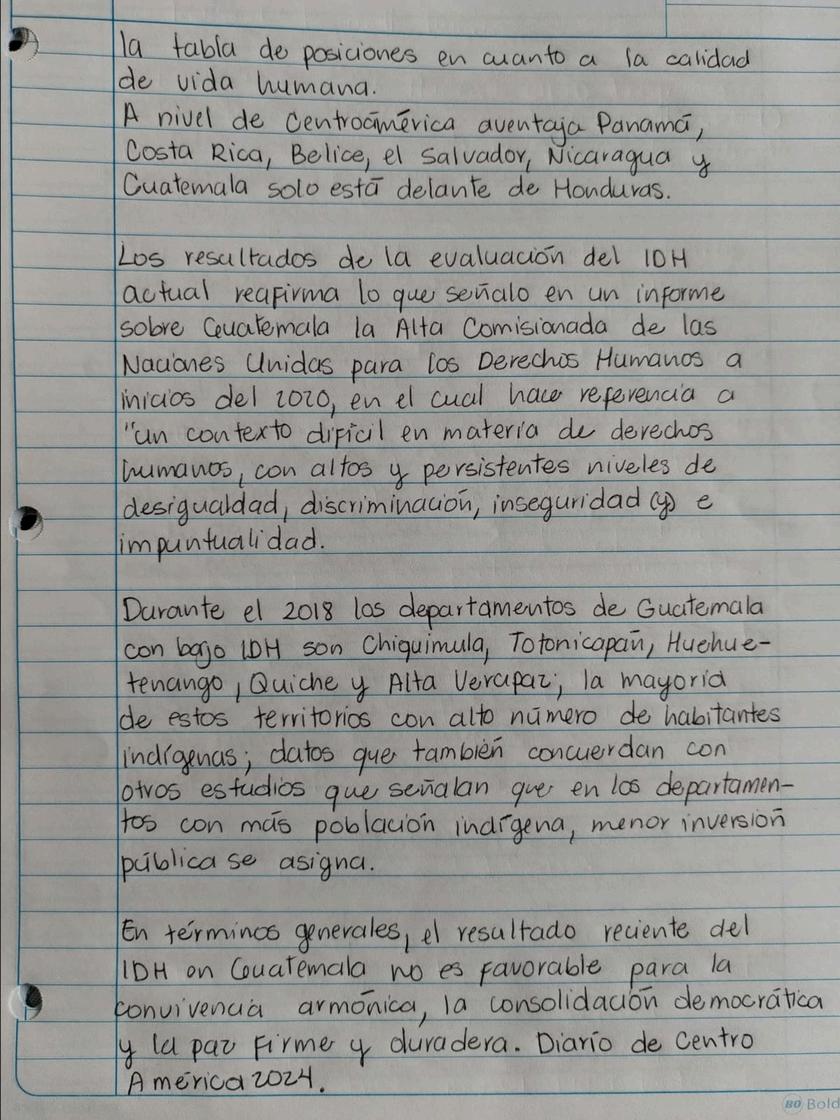 la tabla de posiciones en cuanto a la calidad
de vida humana.
A nivel de Centroámérica aventaja Panamá,
Costa Rica, Belice, el Salvador, Nicaragua y
Guatemala solo está delante de Honduras.
Los resultados de la evaluación del IDH
actual reafirma lo que señalo en un informe
sobre Guatemala la Alta Comisionada de las
Naciones Unidas para los Derechos Humanos a
inicios del 2020, en el cual hace referencia a
"un contexto difícil en materia de derechos
humanos, con altos y persistentes niveles de
desigualdad, discriminación, inseguridad (y) e
impuntualidad.
Durante el 2018 los departamentos de Guatemala
con bajo IDH son Chiquimula, Totonicapán, Huehue-
tenango, Quiche y Alta Verapaz, la mayoría
de estos territorios con alto número de habitantes
indígenas; datos que también concuerdan con
otros estudios que señalan que en los departamen-
tos con más población indígena, menor inversión
pública se asigna.
En términos generales, el resultado reciente del
IDH en Guatemala no es favorable para la
convivencia armónica, la consolidación democrática
y la paz firme y duradera. Diario de Centro
América 2024.
BO Bold